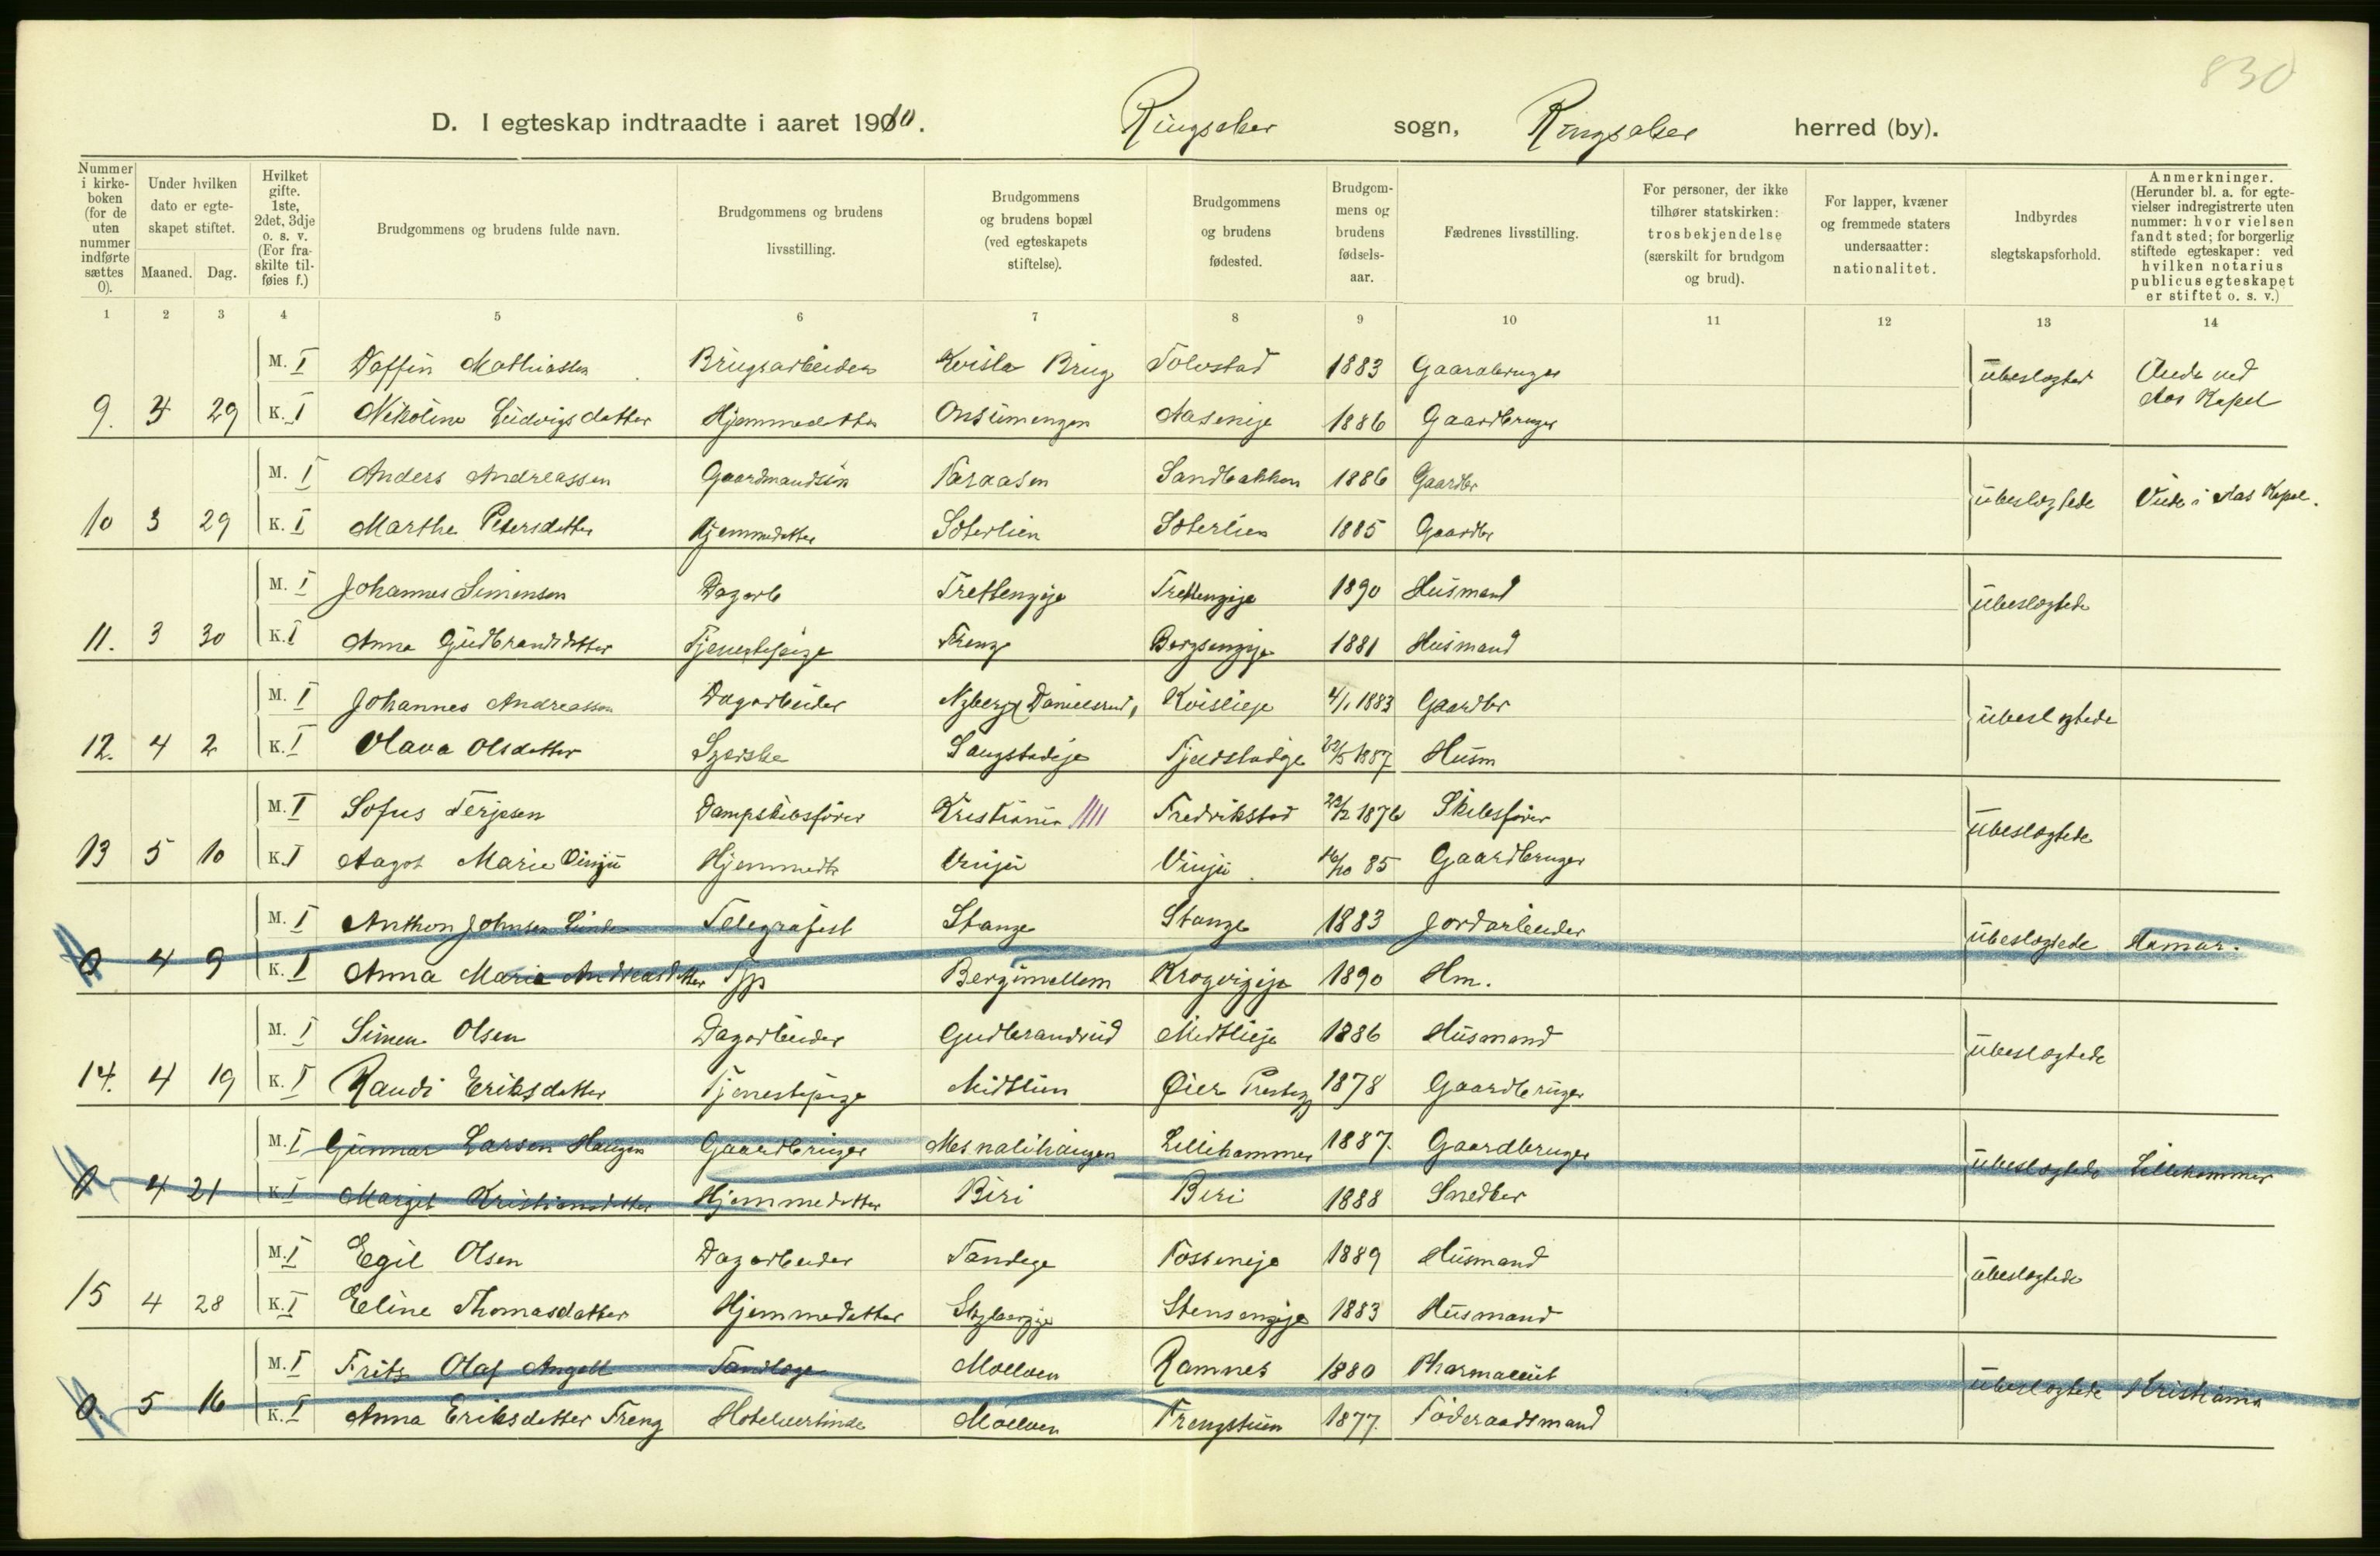 830
D. I egteskap indtraadte i aaret 1910. Ringsaker sogn, Ringsaker herred (by).
Nummer i kirkeboken (for de uten nummer indførte sættes 0).
Under hvilken dato er egteskapet stiftet. Maaned. Dag.
Hvilket gifte. 1ste, 2det, 3dje o. s. v. (For fraskilte tilføies f.)
Brudgommens og brudens fulde navn.
Brudgommens og brudens livsstilling.
Brudgommens og brudens bopæl (ved egteskapets stiftelse).
Brudgommens og brudens fødested.
Brudgommens og brudens fødselsaar.
Fædrenes livsstilling.
For personer, der ikke tilhører statskirken: trosbekjendelse (særskilt for brudgom og brud).
For lapper, kvæner og fremmede staters undersaatter: nationalitet.
Indbyrdes slegtskapsforhold.
Anmerkninger. (Herunder bl. a. for egtevielser indregistrerte uten nummer: hvor vielsen fandt sted; for borgerlig stiftede egteskaper: ved hvilken notarius publicus egteskapet er stiftet o. s. v.)
1 2 3 4 5 6 7 8 9 10 11 12 13 14
M. I Daffin Mathiassen Brugsarbeider Kvisla Brug Tolvstad 1883 Gaardbruger ubeslogted Viede ved Aas Kapel
9. 3 29 K. I Nikoline Ludvigsdatter Hjemmedatter Onsumengen Aaseneje 1886 Gaardbruger
M. I Anders Andreassen Gaardmandssøn Taraasen Sandbakken 1886 Gaardbr ubeslogtede Viede i Aas Kapel.
10 3 29 K. I Marthe Petersdatter Hjemmedatter Sæterlien Sæterlien 1885 Gaardbr
M. I Johannes Simensen Dagarb Trettengeje Trettengeje 1890 Husmand ubeslogtede
11. 3 30 K. I Anna Gudbrandsdatter Tjenestepige Freng Bergsengeje 1881 Husmand
M. I Johannes Andreassen Dagarbeider Nyberg (Danielsrud) Kvislieje 4/1 1883 Gaardbr ubeslogtede
12. 4 2 K. I Olava Olsdatter Syerske Saugstadeje Fjeldstadeje 22/5 1887 Husm
M. I Sofus Terjesen Dampskibsfører Kristiania Fredrikstad 23/12 1876 Skibsfører ubeslogtede
13 5 10 K. I Aagot Marie Vinju Hjemmedtr Vinju Vinju 16/10 85 Gaardbruger
M. I Anthon Johnsen Linde Telegrafist Stange Stange 1883 Jordarbeider ubeslogtede Hamar.
0 4 9 K. I Anna Marie Andreasdatter Tjp Bergimellem Krogvigeje 1890 Hm.
M. I Simen Olsen Dagarbeider Gudbrandrud Midtlieje 1886 Husmand ubeslogtede
14. 4 19 K. I Randi Eriksdatter Tjenestepige Midtlien Øier Presteg 1878 Gaardbruger
M. I Gunnar Larsen Haugen Gaardbruger Mesnalihaugen Lillehammer 1887. Gaardbruger ubeslogtede Lillehammer
0 4 21 K. I Margit Kristiansdatter Hjemmedatter Biri Biri 1888 Snedker
M. I Egil Olsen Dagarbeider Tandeje Fosseneje 1889 Husmand ubeslogtede
15 4 28 K. I Eline Thomasdatter Hjemmedatter Stybergeje Stensengeje 1883 Husmand
M. I Frits Olaf Angell Tandlæge Moelven Ramnes 1880 Pharmaceut ubeslogtede Kristiania
0. 5 16 K. I Anna Eriksdatter Freng Hotelvertinde Moelven Frengstuen 1877. Føderaadsmand